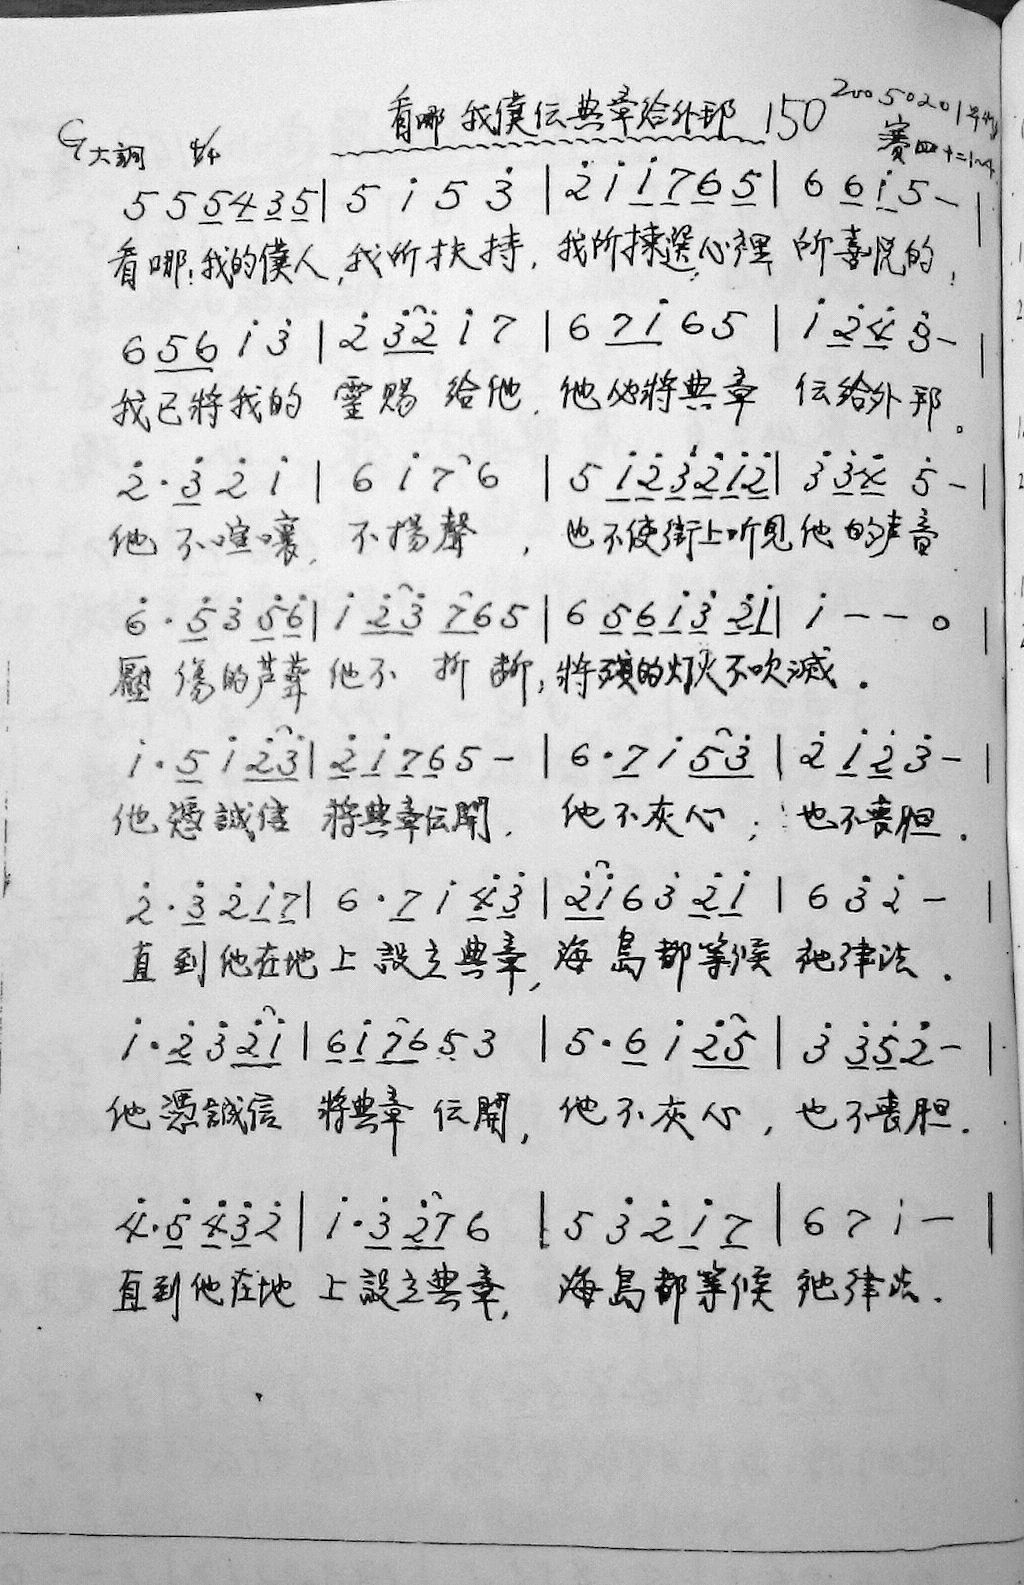 看哪 我僕伝典章給外邦 150 20050201早
G大調 4/4 賽四十二1~4
5 5 5 4 3 5 | 5 i 5 3̇ | 2̇ i i 7 6 5 | 6 6 i 5 – |
看哪;我的僕人,我所扶持,我所揀選,心裡 所喜悅的,
6 5 6 i 3̇ | 2̇ 3̇ 2̇ i 7 | 6 7 i 6 5 | i 2̇ 4̇ 3̇ – |
我已將我的 靈賜 給他,他必將典章 伝給外邦。
2̇ · 3̇ 2̇ i | 6 i 7 6 | 5 i 2̇ 3̇ 2̇ i 2̇ | 3̇ 3̇ 4̇ 5̇ – |
他 不喧嚷,不揚聲,也不使街上听見他的声音
6̇ · 5̇ 3̇ 5̇ 6̇ | i 2̇ 3̇ 7 6 5 | 6 5 6 i 3̇ 2̇ i | i – – 0 |
壓傷的芦葦 他不 折 断,將殘的灯火不吹滅.
i · 5 i 2̇ 3̇ | 2̇ i 7 6 5 – | 6 · 7 i 5̇ 3̇ | 2̇ i 2̇ 3̇ – |
他憑誠信 將典章伝開,他不灰心;也不喪胆.
2̇ · 3̇ 2̇ i 7 | 6 · 7 i 4̇ 3̇ | 2̇ i 6 3̇ 2̇ i | 6 3̇ 2̇ – |
直到他在地上設立典章,海島都等候 祂律法.
i · 2̇ 3̇ 2̇ i | 6 i 7 6 5 3 | 5 · 6 i 2̇ 5̇ | 3̇ 3̇ 5̇ 2̇ – |
他憑誠信 將典章 伝開,他不灰心,也不喪胆.
4̇ · 5̇ 4̇ 3̇ 2̇ | i · 3̇ 2̇ 7 6 | 5 3̇ 2̇ i 7 | 6 7 i – |
直到他在地 上設立典章,海島都等候 祂律法.